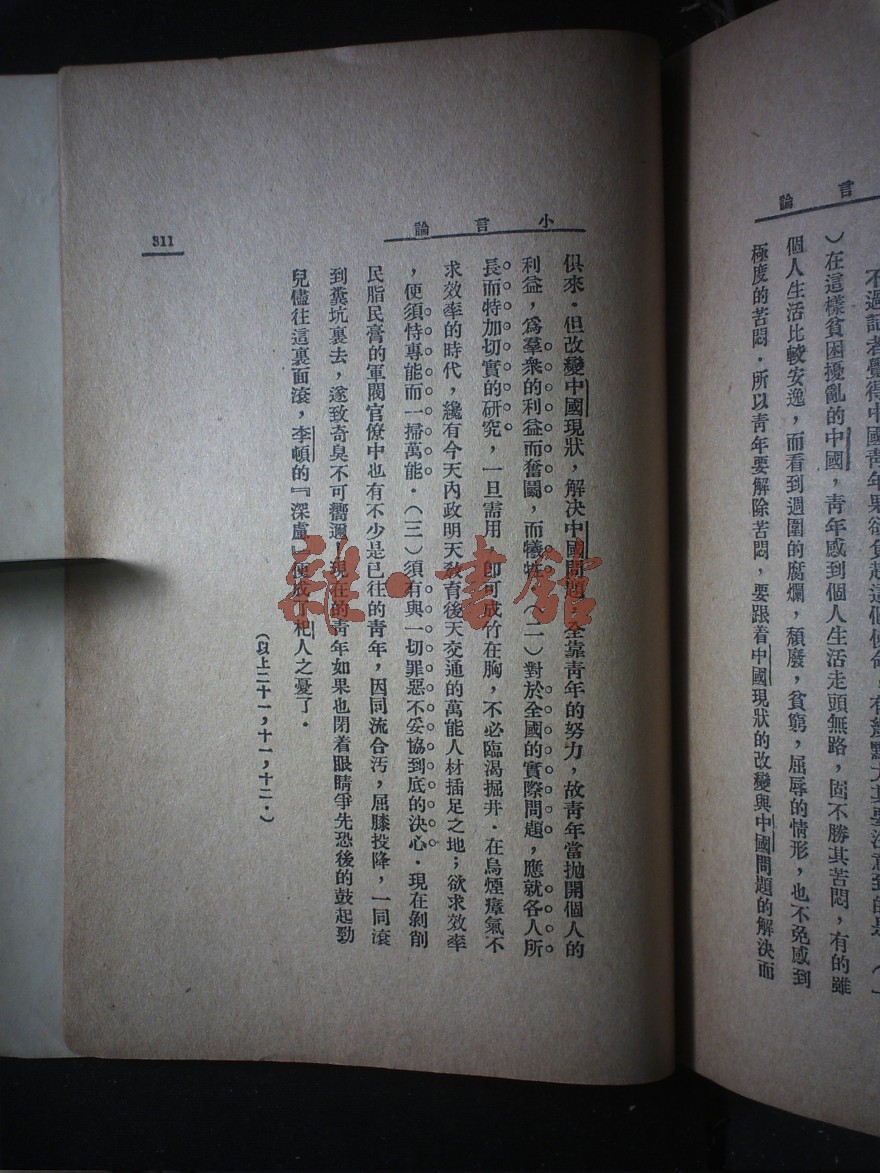 言論
不過記者覺得中國青年果欲負起這個使命，有幾點尤其要注意到的是（一
）在這樣貧困擾亂的中國，青年感到個人生活走頭無路，固不勝其苦悶，有的雖
個人生活比較安逸，而看到週圍的腐爛，頹廢，貧窮，屈辱的情形，也不免感到
極度的苦悶．所以青年要解除苦悶，要跟着中國現狀的改變與中國問題的解決而
小言論
俱來．但改變中國現狀，解决中國問題，全靠青年的努力，故青年當抛開個人的
利益，爲羣衆的利益而奮鬭，而犧牲．（二）對於全國的實際問題，應就各人所
長而特加切實的研究，一旦需用，卽可成竹在胸，不必臨渴掘井．在烏煙瘴氣不
求效率的時代，纔有今天內政明天敎育後天交通的萬能人材插足之地；欲求效率
，便須恃專能而一掃萬能．（三）須有與一切罪惡不妥協到底的決心．現在剝削
民脂民膏的軍閥官僚中也有不少是已往的青年，因同流合汚，屈膝投降，一同滾
到糞坑裏去，遂致奇臭不可嚮邇！現在的青年如果也閉着眼睛爭先恐後的鼓起勁
兒儘往這裏面滾，李頓的『深慮』便成了杞人之憂了．
（以上二十一，十一，十二．）
311
雜·書館